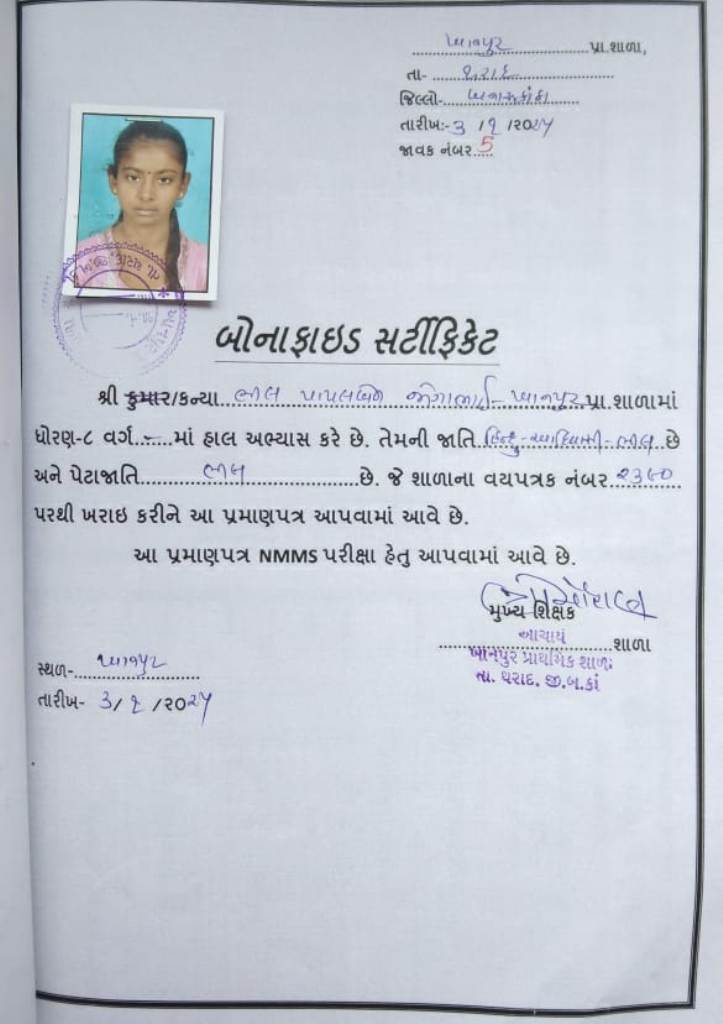 ખાનપુર પ્રા.શાળા,
તા- થરાદ
જિલ્લો- બનાસકાંઠા
તારીખ:- 3 /1 /૨૦૨૫
જાવક નંબર 5
બોનાફાઇડ સર્ટીફિકેટ
શ્રી કુમાર/કન્યા ભીલ પાયલબેન જોગાભાઈ - ખાનપુર પ્રા.શાળામાં
ધોરણ-૮ વર્ગ માં હાલ અભ્યાસ કરે છે. તેમની જાતિ હિન્દુ-આદિવાસી-ભીલ છે
અને પેટાજાતિ ભીલ છે. જે શાળાના વયપત્રક નંબર
પરથી ખરાઇ કરીને આ પ્રમાણપત્ર આપવામાં આવે છે.
આ પ્રમાણપત્ર NMMS પરીક્ષા હેતુ આપવામાં આવે છે.
મુખ્ય શિક્ષક
આચાર્ય શાળા
ખાનપુર પ્રાથમિક શાળા
તા. થરાદ. જી.બ.કાં
સ્થળ- ખાનપુર
તારીખ- 3/ 1 /૨૦૨૫